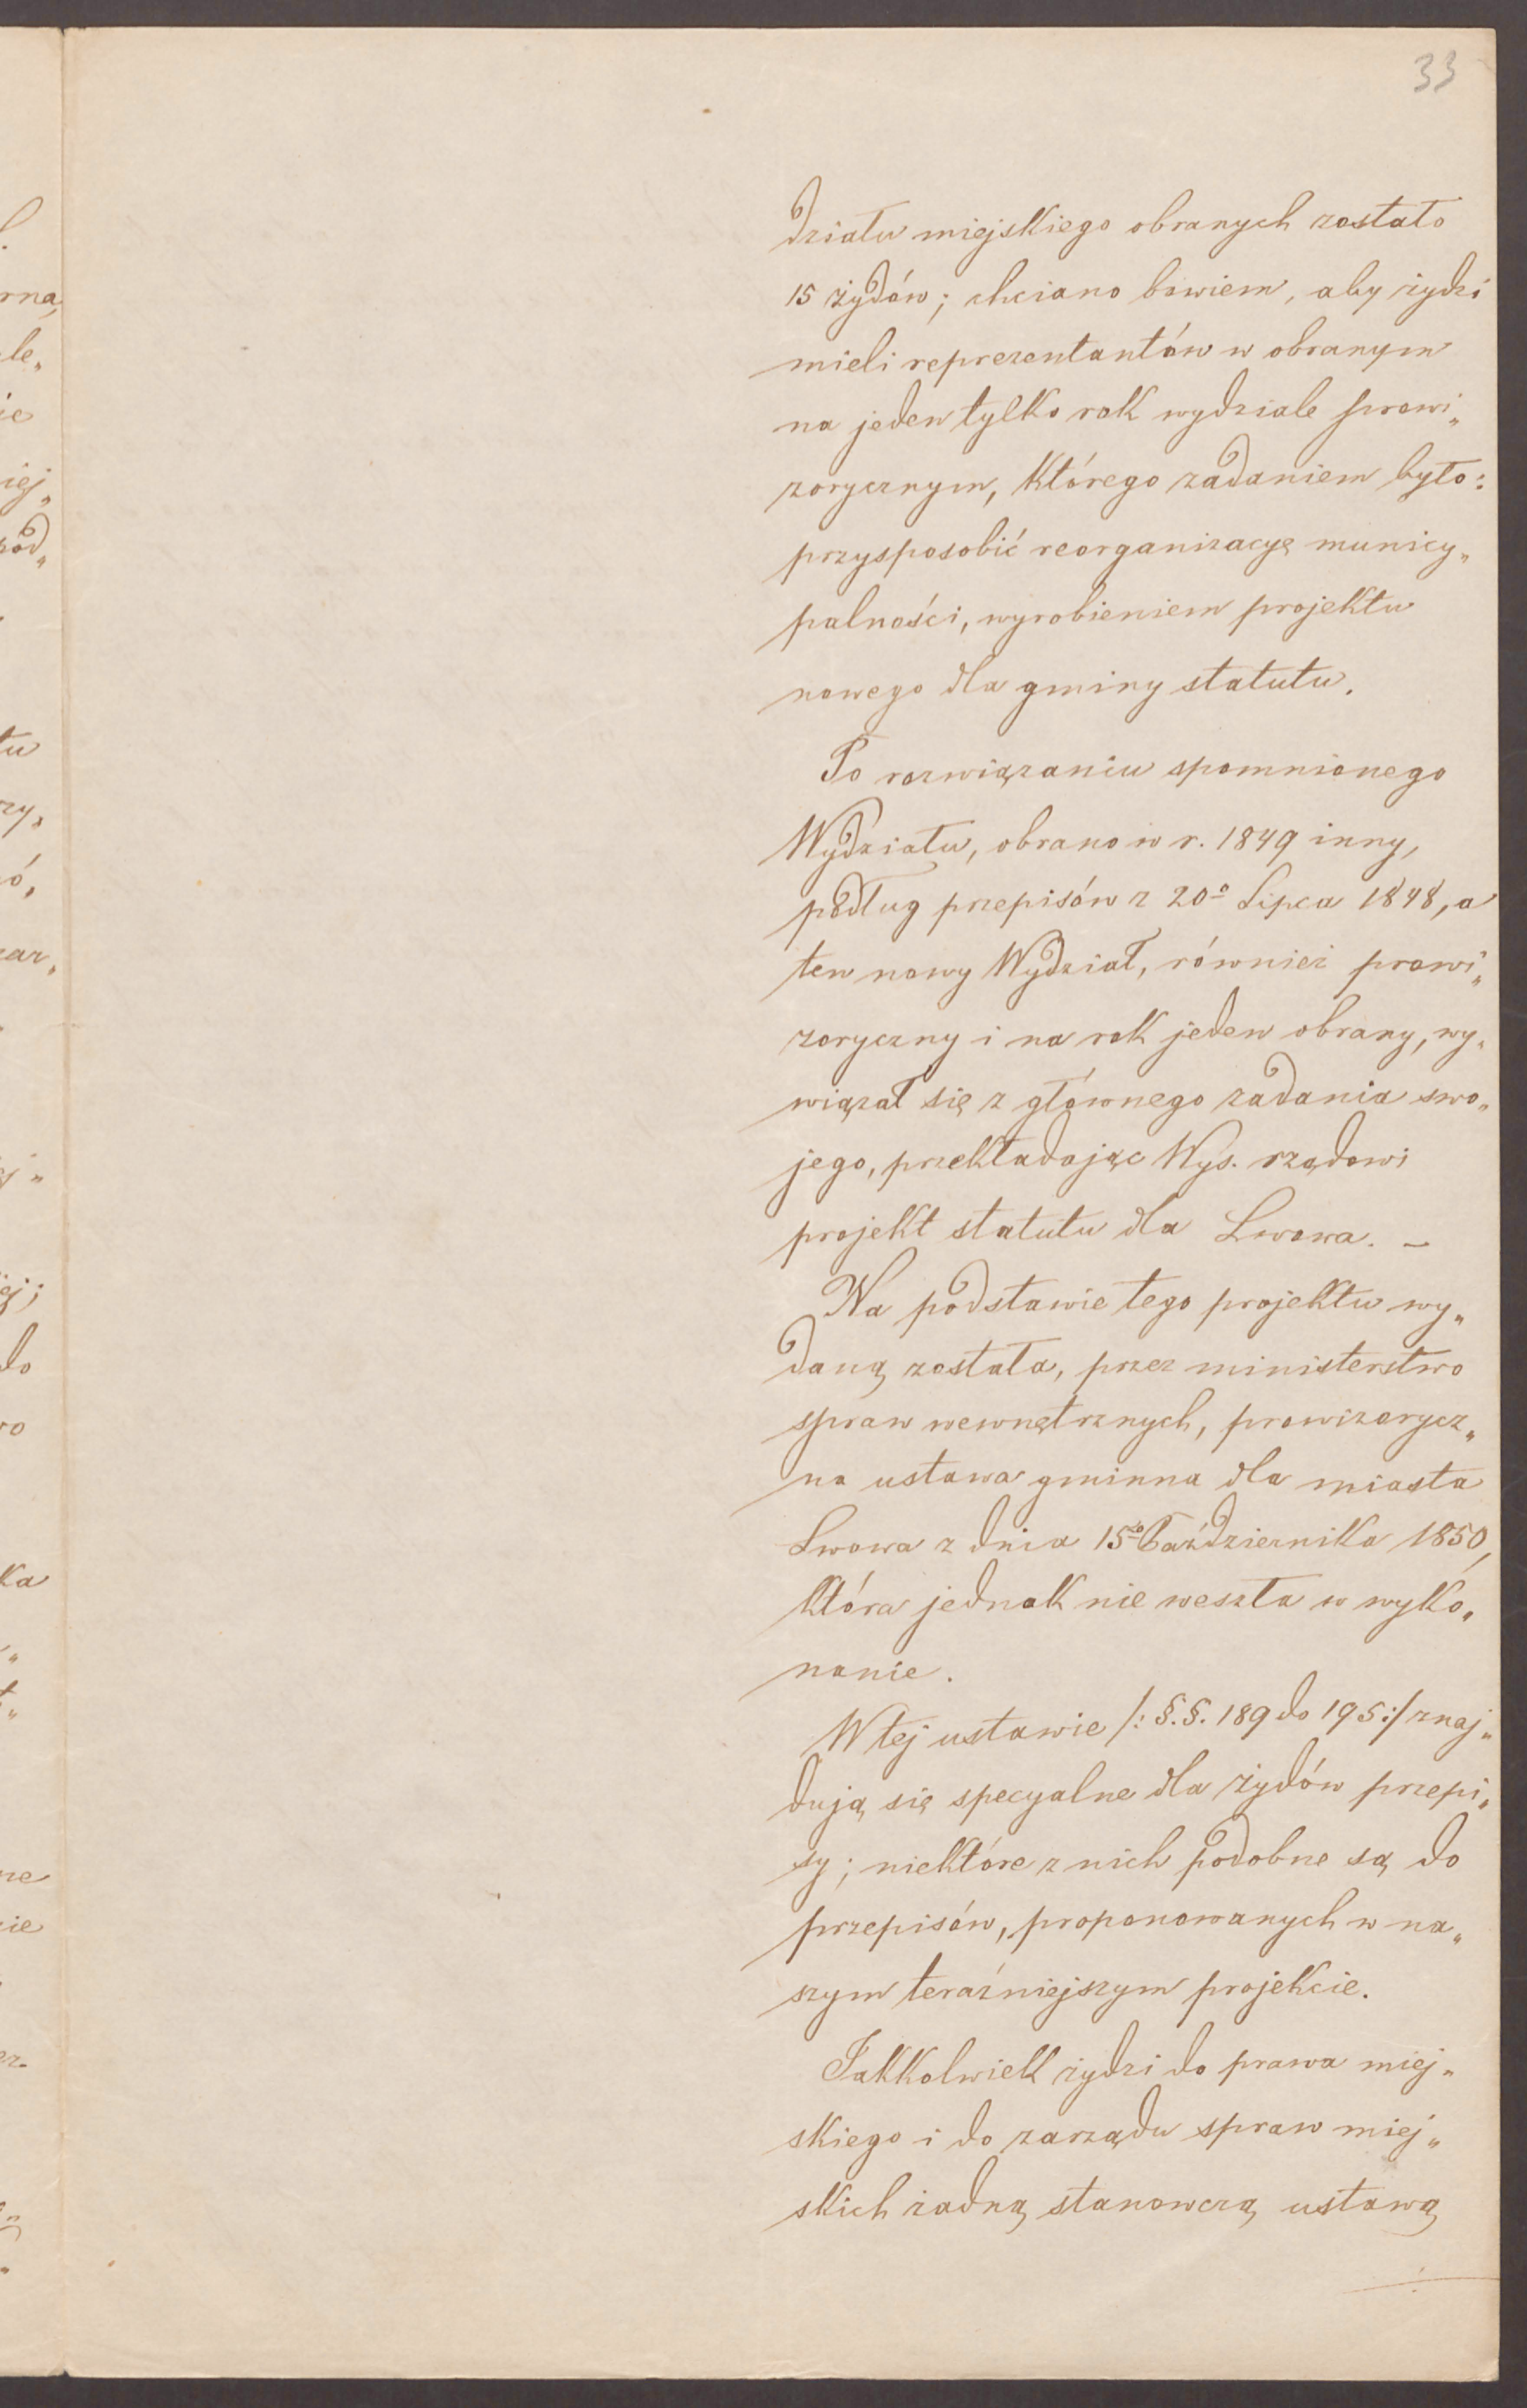 33
działu miejskiego obranych zostało
15 żydów; chciano bowiem, aby żydzi
mieli reprezentantów w obranym
na jeden tylko rok wydziale prowi„
zorycznym, którego zadaniem było:
przysposobić reorganizacyę municy„
palności, wyrobieniem projektu
nowego dla gminy statutu.
Po rozwiązaniu spomnionego
Wydziału, obrano w r. 1849 inny,
podług przepisów z 20º Lipca 1848, a
ten nowy Wydział, również prowi„
zoryczny i na rok jeden obrany, wy„
wiązał się z głównego zadania swo„
jego, przekładając Wys. rządowi
projekt statutu dla Lwowa. –
Na podstawie tego projektu wy„
daną została, przez ministerstwo
spraw wewnętrznych, prowizorycz„
na ustawa gminna dla miasta
Lwowa z dnia 15º Października 1850,
która jednak nie weszła w wyko„
nanie.
W tej ustawie /: §.§. 189 do 195 :/ znaj„
dują się specyalne dla żydów przepi„
sy; niektóre z nich podobne są do
przepisów, proponowanych w na„
szym teraźniejszym projekcie.
Jakkolwiek żydzi do prawa miej„
skiego i do zarządu spraw miej„
skich żadną stanowczą ustawą